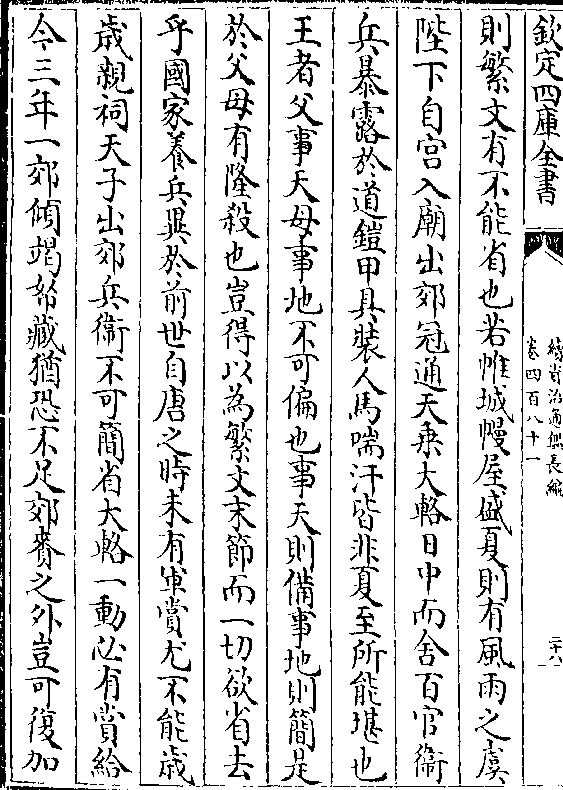 欽定四庫全書
續資治通鑑長編
卷四百八十一
二十八
則繁文有不能省也若帷城幔屋盛夏則有風雨之虞
陛下自宫入廟出郊冠通天乗大輅日中而舍百官衞
兵暴露於道鎧甲具裝人馬喘汗皆非夏至所能堪也
王者父事天母事地不可偏也事天則備事地則簡是
於父母有隆殺也豈得以為繁文末節而一切欲省去
乎國家養兵異於前世自唐之時未有軍賞尤不能歳
歳親祠天子出郊兵衞不可簡省大輅一動必有賞給
今三年一郊傾竭帑藏猶恐不足郊賚之外豈可復加